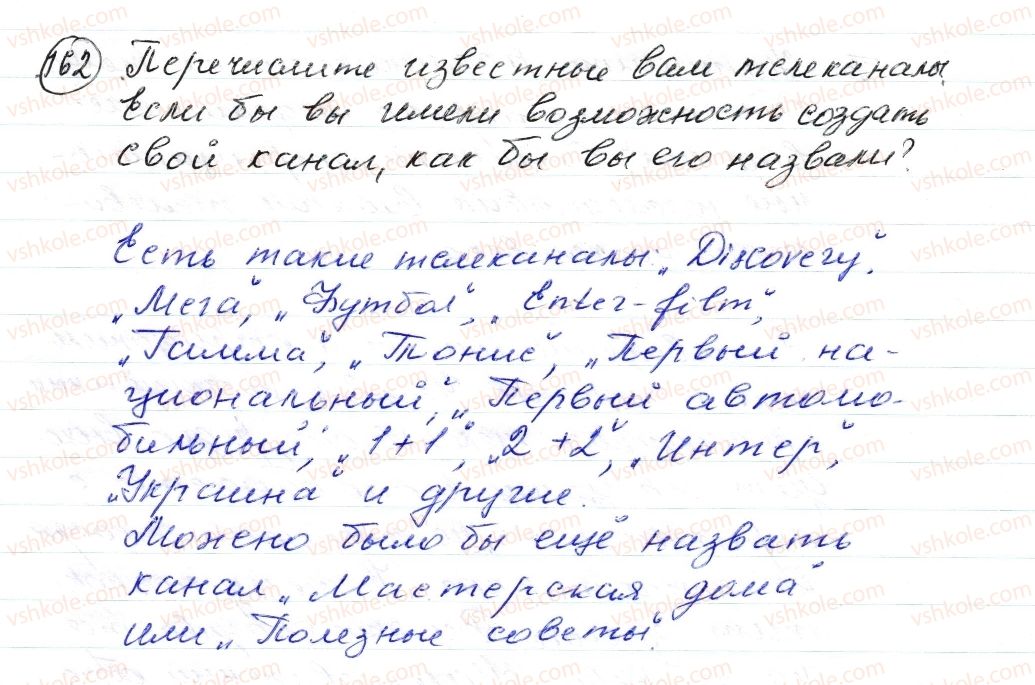 162 Перечислите известные вам телеканалы
Если бы вы имели возможность создать
свой канал, как бы вы его назвали?
Есть такие телеканалы: „Discovery“,
„Мега“, „Футбол“, „Enter-film“,
„Гамма“, „Тонис“, „Первый на-
циональный“, „Первый автомо-
бильный“, „1+1“, „2+2“, „Интер“,
„Украина“ и другие.
Можно было бы ещё назвать
канал „Мастерская дома“
или „Полезные советы“.